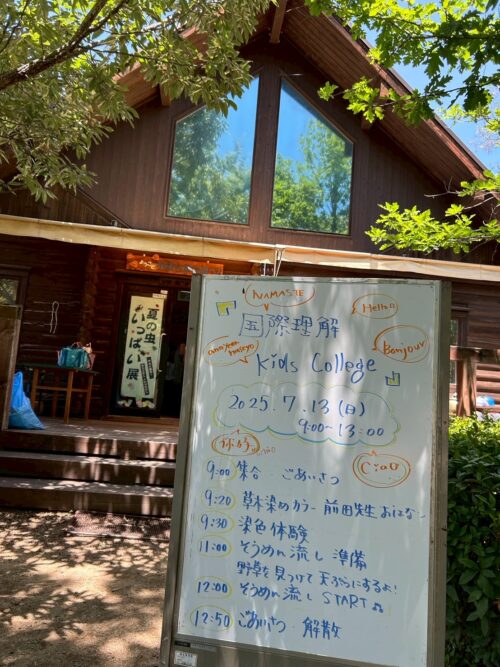 夏の虫
いっぱい展
NAMASTE
Hello
国際理解
Kids College
Bonjour
2025.7.13(日)
9:00~13:00
Ciao
9:00 集合 ごあいさつ
9:20 草木染めカラー 前田先生
9:30 染色体験
11:00 そうめん流し 準備
野草を見つけて天ぷらにするよ!
12:00 そうめん流し START♫
12:50 ごあいさつ 解散